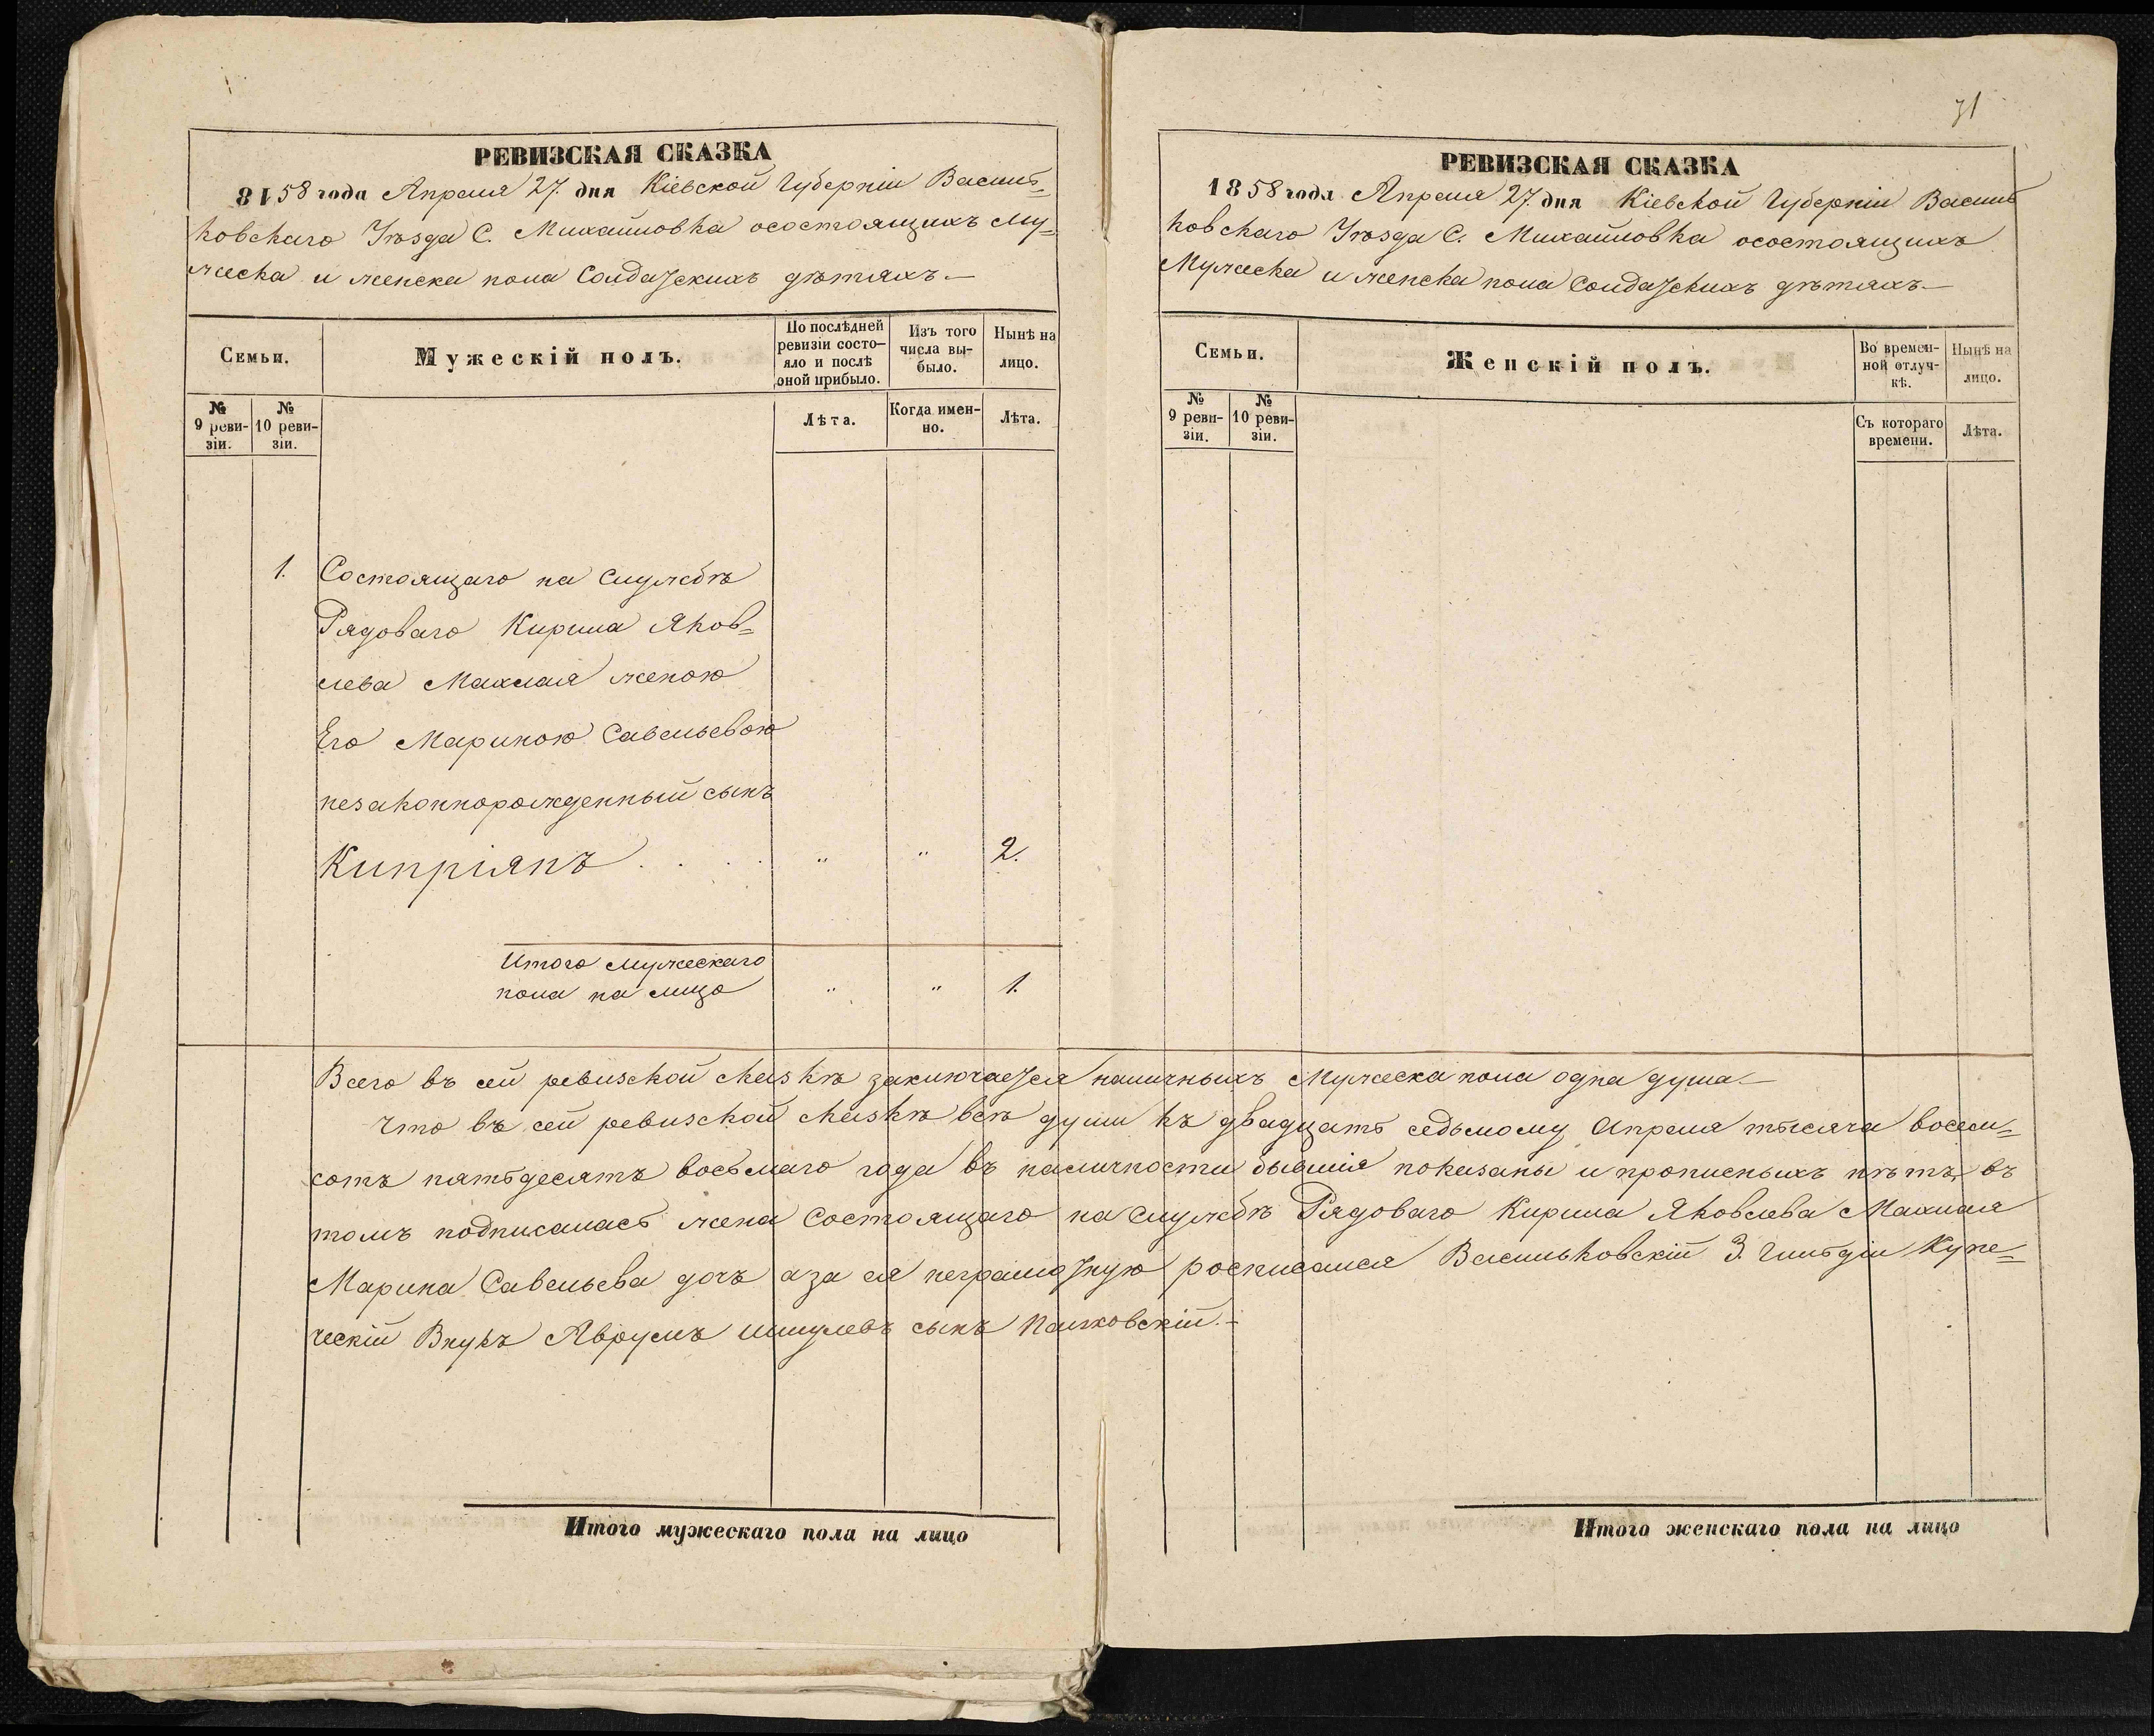 РЕВИЗСКАЯ СКАЗКА
8158 года Апреля 27. дня Кіевской Губерніи Василь=
ковскаго Уѣзда С. Михайловка осостоящихъ Му=
жеска и женска пола Солдатскихъ дѣтяхъ.—
Семьи.
Мужескій полъ.
По послѣдней
ревизіи состо-
яло и послѣ
оной прибыло.
Изъ того
числа вы-
было.
Нынѣ на
лицо.
№
9 реви-
зіи.
№
10 реви-
зіи.
Лѣта.
Когда имен-
но.
Лѣта.
1. Состоящаго на Службѣ
Рядоваго Кирила Яков=
лева Махлая женою
Его Мариною Савельевою
незаконнорожденный сынъ
Кипріянъ . . . . " " 2.
Итого мужескаго
пола на лицо " " 1.
31
РЕВИЗСКАЯ СКАЗКА
1858 года Апреля 27. дня Кіевской Губерніи Василь
ковскаго Уѣзда С. Михайловка осостоящихъ
Мужеска и женска пола Солдатскихъ дѣтяхъ.—
Семьи.
Женскій полъ.
Во времен-
ной отлуч-
кѣ.
Нынѣ на
лицо.
№
9 реви-
зіи.
№
10 реви-
зіи.
Съ котораго
времени.
Лѣта.
Всего въ сей ревизской сказкѣ заключается наличныхъ Мужеска пола одна душа.—
Что въ сей ревизской сказкѣ всѣ души къ двадцать седьмому Апреля тысяча восем=
сотъ пятьдесятъ восьмаго года въ наличности бывшія показаны и прописныхъ нѣтъ, въ
томъ подписалась жена Состоящаго на Службѣ Рядоваго Кирила Яковлева Махлая
Марина Савельева дочъ а за ея неграмотную росписался Васильковскій 3. Гильдіи Купе=
ческій Внукъ Аврумъ Шмулевъ сынъ.—
Итого мужескаго пола на лицо
Итого женскаго пола на лицо